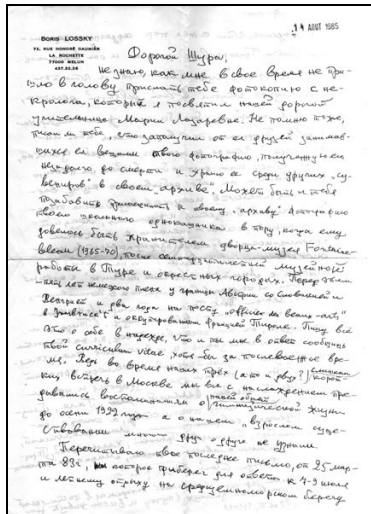 14 AOUT 1985
BORIS LOSSKY
73, RUE HONORÉ DAUMIER
LA ROCHETTE
77000 MELUN
437.82.26
Дорогой Шура,
не знаю, как мне в свое время не при-
шло в голову прислать тебе фотокопию с не-
кролога, который я посвятил нашей дорогой
учительнице Марии Лазаревне. Не помню также,
писал ли тебе, что заполучил от её друзей занимав-
шихся её вещами твою фотографию, полученную ею
незадолго до смерти и храню её среди других „су-
вениров" в своем „архиве". Может быть и тебя
позабавит приобщить к своему „архиву" фотографию
твоего школьного однокашника в пору, когда ему
довелось быть хранителем дворца-музея Fontaine-
bleau (1965-70), после семнадцатилетней музейной
работы в Туре и окрестных городах. Перед этим
пять лет немецкого плена у границы Австрии со Словакией и
Венгрией и два года на посту „officier des beaux-arts"
в Innsbruck'e и оккупированном Францией Тироле. Пишу всё
это о себе в надежде, что и ты мне в ответ сообщишь
твой curriculum vitae, хотя бы за послевоенное вре-
мя. Ведь во время наших трёх (а то и двух?) слишком корот-
ких встреч в Москве мы всё с наслаждением пре-
давались воспоминаниям о нашей общей гимназической жизни
до осени 1922 года а о нашем „взрослом" суще-
ствовании много друг о друге не узнали.
Перечитываю твоё последнее письмо, от 25 мар-
та 83г., которое приберег для ответа к
и летнему отдыху на средиземноморском берегу